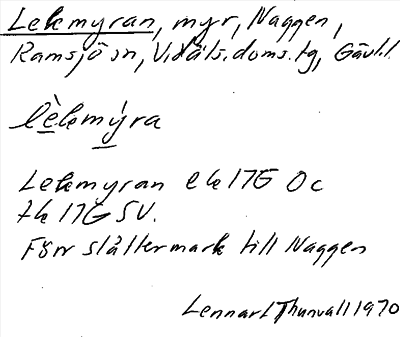 Lekmyran, myr, Naggen,
Ramsjö sn, V. Häls. doms. tg, Gävl. l
lèkmýra
Lekmyran ek 17G 0c
tk 17G SV.
Förr slåttermark till Naggen
Lennart Thunvall 1970